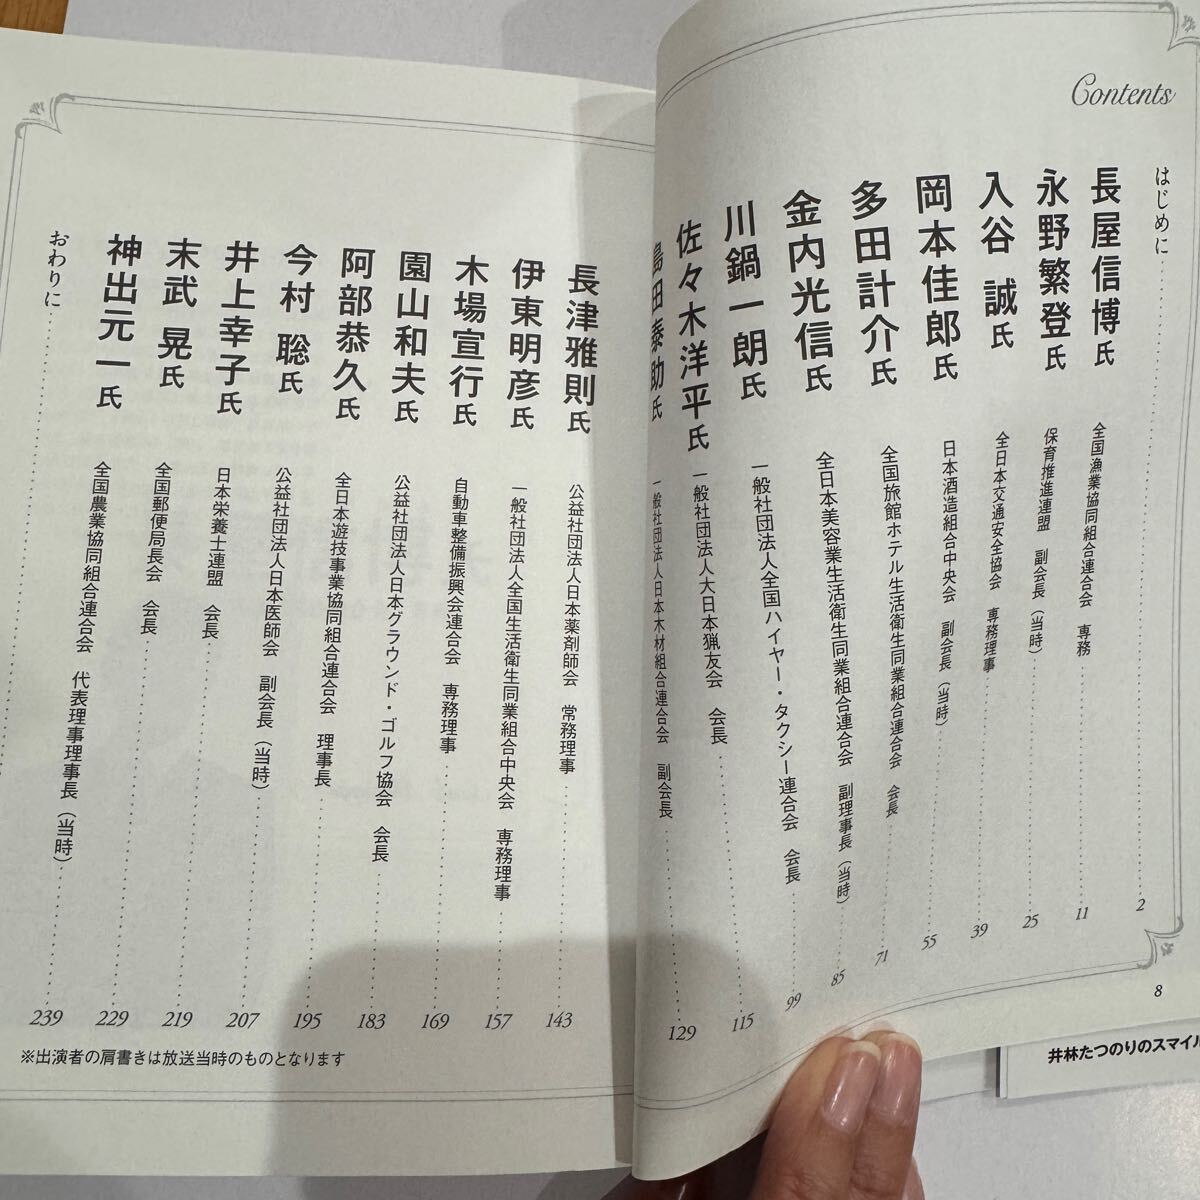 Contents
はじめに 2
長屋信博氏 全国漁業協同組合連合会 専務 11
永野繁登氏 保育推進連盟 副会長（当時） 25
入谷 誠氏 全日本交通安全協会 専務理事 39
岡本佳郎氏 日本酒造組合中央会 副会長（当時） 55
多田計介氏 全国旅館ホテル生活衛生同業組合連合会 会長 71
金内光信氏 全日本美容業生活衛生同業組合連合会 副理事長（当時） 85
川鍋一朗氏 一般社団法人全国ハイヤー・タクシー連合会 会長 99
佐々木洋平氏 一般社団法人大日本猟友会 会長 115
島田泰助氏 一般社団法人日本木材組合連合会 副会長 129
8
長津雅則氏 公益社団法人日本薬剤師会 常務理事 143
伊東明彦氏 一般社団法人全国生活衛生同業組合中央会 専務理事 157
木場宣行氏 自動車整備振興会連合会 専務理事 169
園山和夫氏 公益社団法人日本グラウンド・ゴルフ協会 会長 183
阿部恭久氏 全日本遊技事業協同組合連合会 理事長 195
今村 聡氏 公益社団法人日本医師会 副会長（当時） 207
井上幸子氏 日本栄養士連盟 会長 219
末武 晃氏 全国郵便局長会 会長 229
神出元一氏 全国農業協同組合連合会 代表理事理事長（当時） 239
おわりに
※出演者の肩書きは放送当時のものとなります
井林たつのりのスマイル